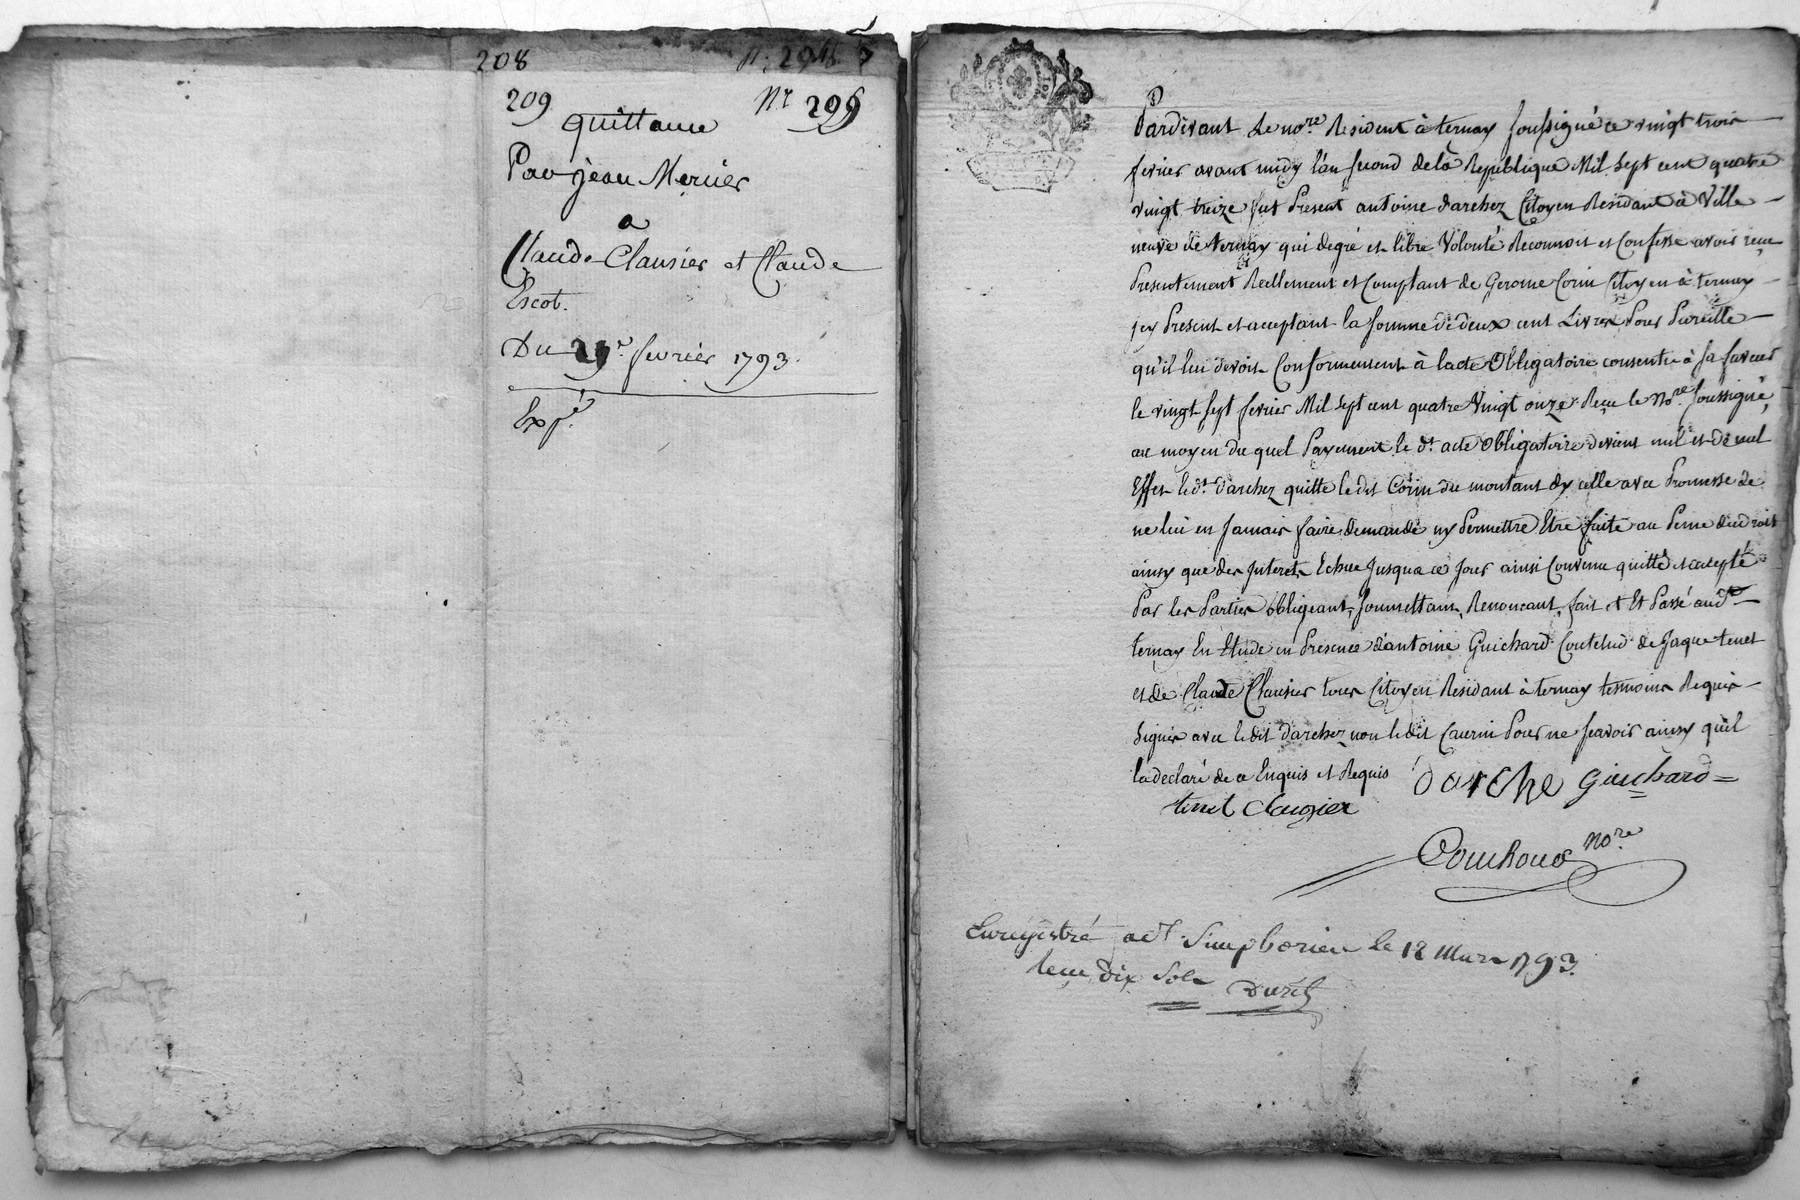 208
209 Nr 295
quittance
Par jean Mercier
a
Claude Clausier et Claude
Escot.
Du 29e. fevrier 1793.
Expé.
Pardevant le nore. Resident à ternay soussigné ce vingt trois
fevrier avant midy l'an second de la Republique Mil sept cent quatre
vingt treize fut Present antoine darchez Citoyen Residant à Ville
neuve de ternay qui de gré et libre Volonté Reconnoit et Confesse avoir reçu
Presentement Reellement et Comptant de Gerome Corin Citoyen à ternay
jcy Present et acceptant la somme de deux cent Livres Pour Pareille
qu'il lui devoit Conformement à lacte Obligatoire consentie à sa faveur
le vingt sept fevrier Mil sept cent quatre Vingt onze Reçu le Nore. soussigné,
au moyen du quel Payement le dt. acte Obligatoire devient nul et de nul
Effet le dt. darchez quitte le dit Corin du montant dy celle avec Promesse de
ne lui en Jamais faire demande ny Permettre Etre faite au Peine du droit
ainsy que des Interets Echue Jusqua ce jour ainsi Convenu quitté et accepté
Par les Parties Obligeant, soumettant, Renoncant, fait et Et Passé audt.
ternay En Etude en Presence d'antoine Guichard de Jaque tenet
et de Claude Clausier tous Citoyen Residant à ternay tesmoins Requis
signés avec le dit darchez non le dit Caurin Pour ne scavoir ainsy qu'il
la declaré de ce Enquis et Requis Darche Guichard
tenet Clauzier
Nore.
Enregistré a St. Simphorien le 12 Mars 1793.
Reçu dix Sols